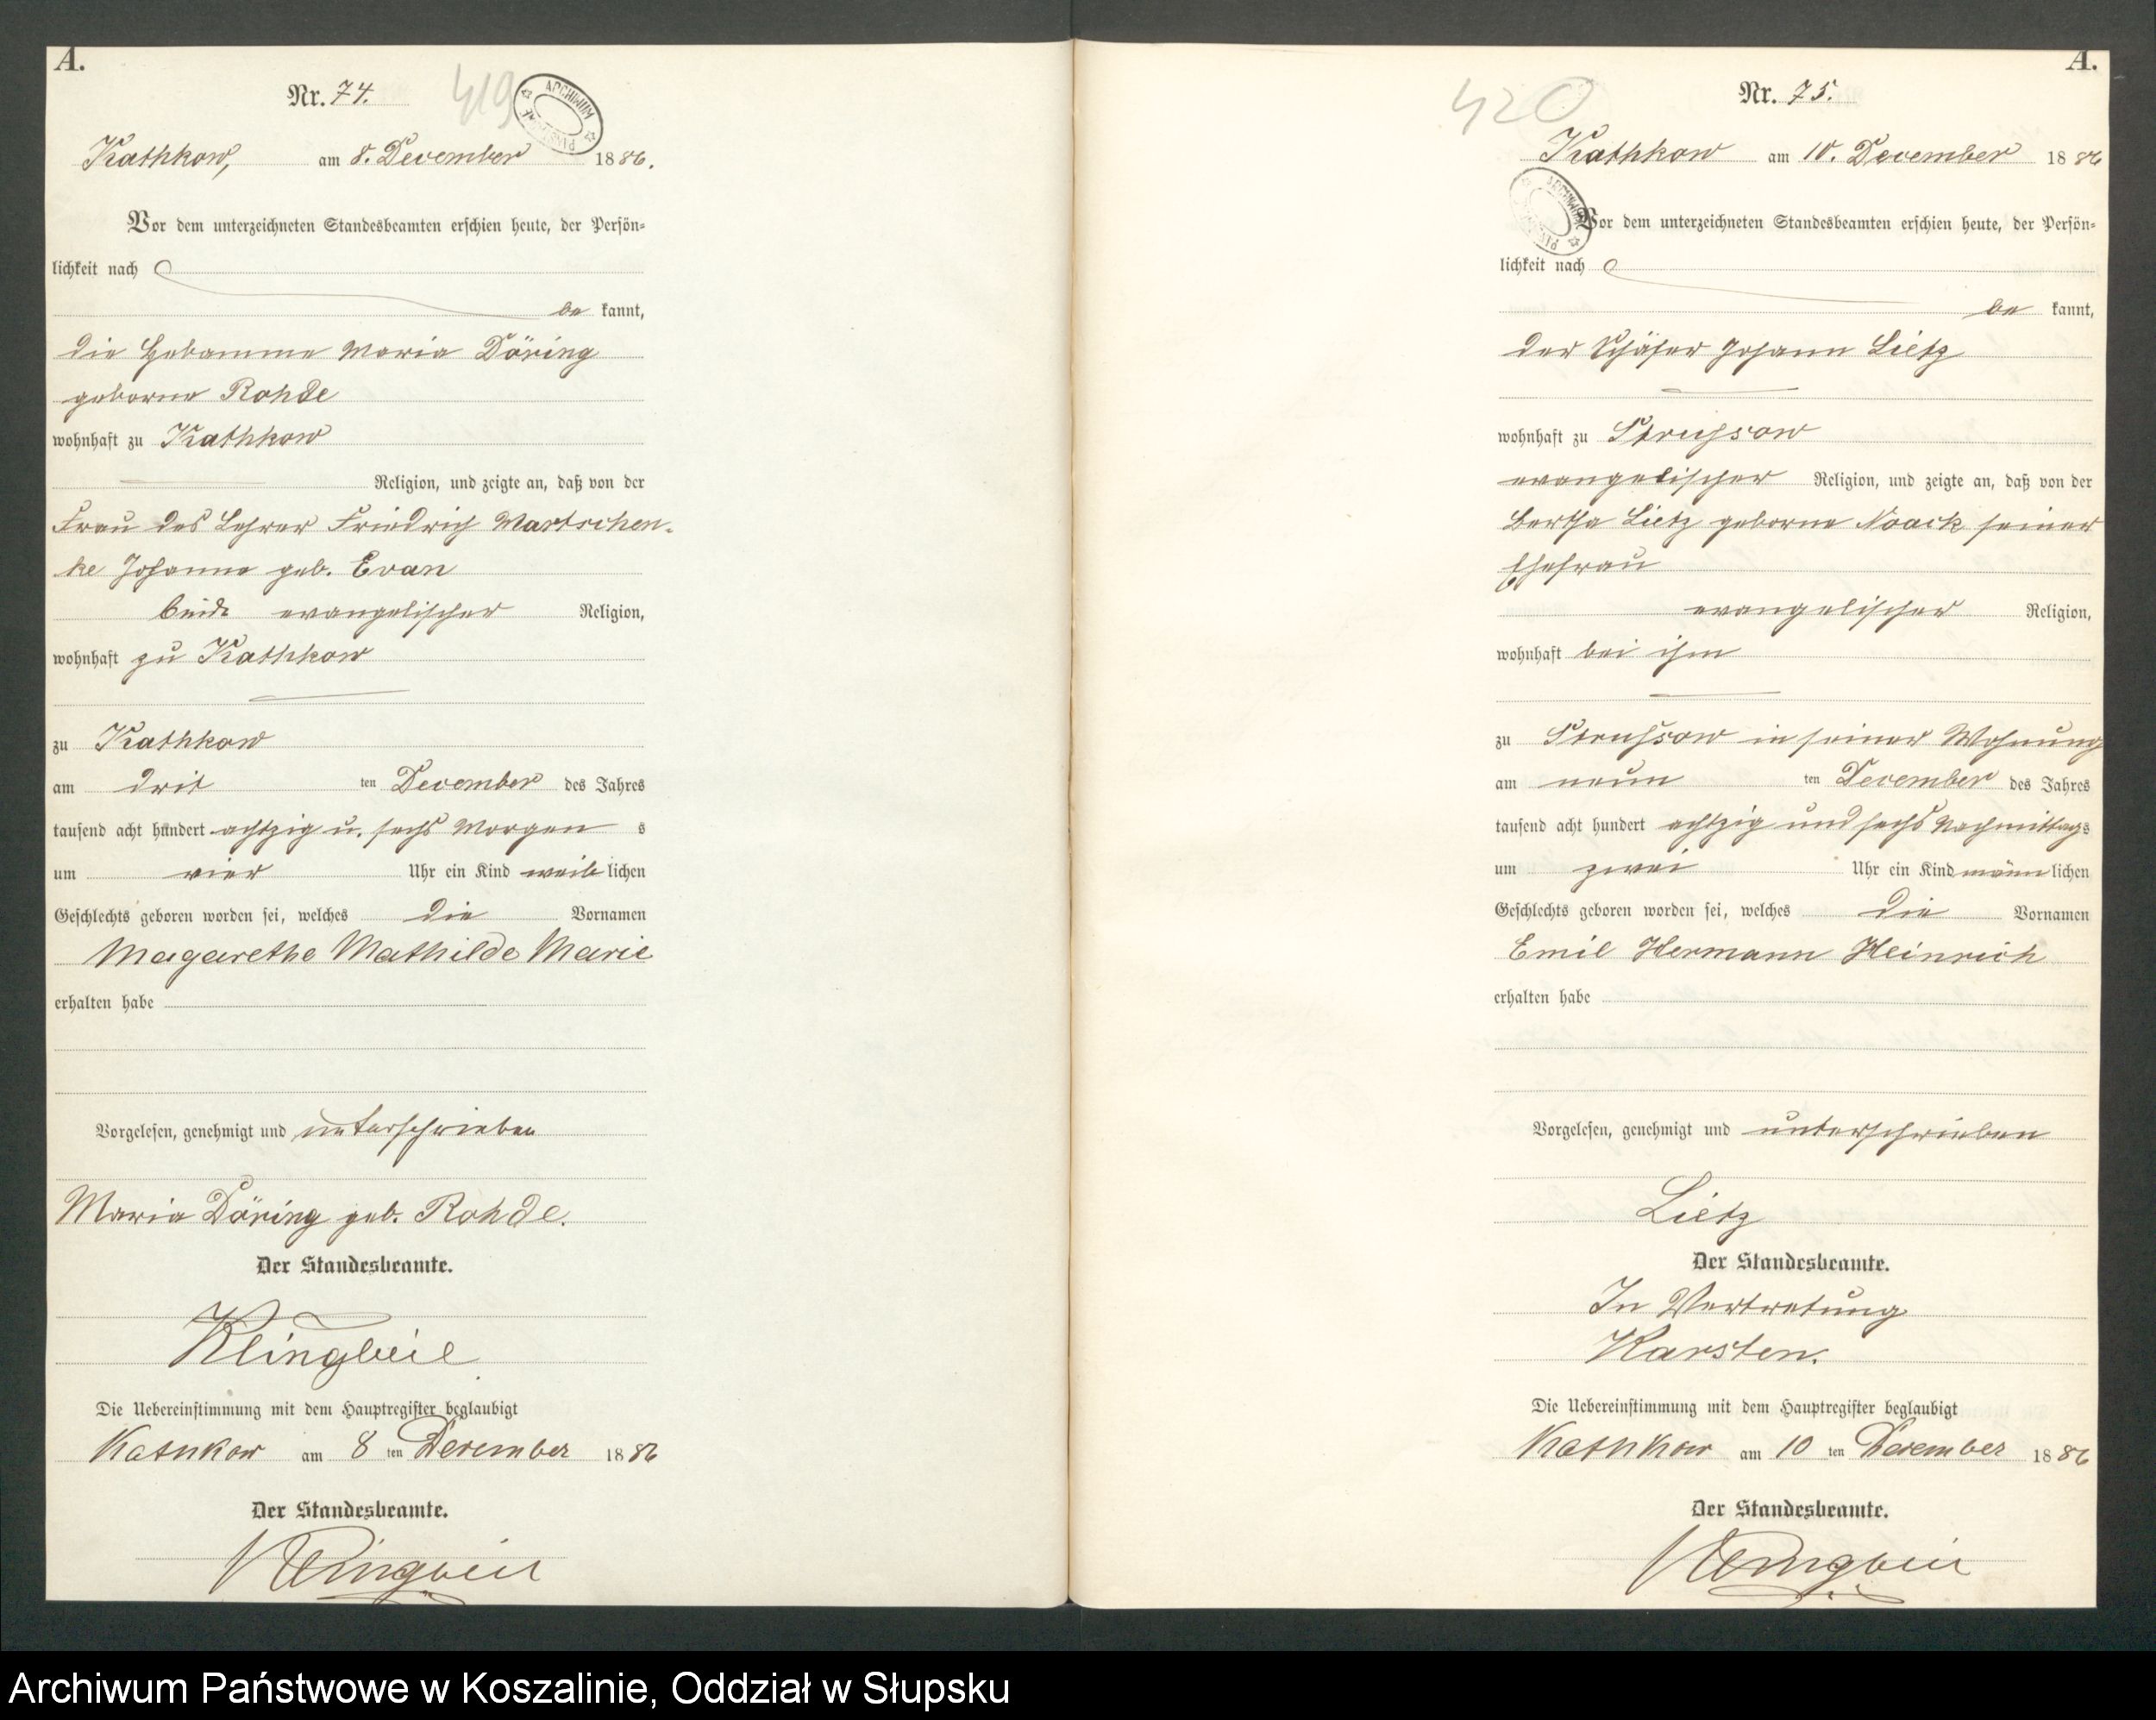 A.
Nr. 74.
419
ARCHIWUM
Kathkow, am 8. December 1886.
Vor dem unterzeichneten Standesbeamten erschien heute, der Persön-
lichkeit nach
be kannt,
die Hebamme Maria Döring
geborne Rohde
wohnhaft zu Kathkow
Religion, und zeigte an, daß von der
Frau des Lehrer Friedrich Martschen-
ke Johanne geb. Evan
beide evangelischer Religion,
wohnhaft zu Kathkow
zu Kathkow
am drit ten December des Jahres
tausend acht hundert achtzig u. sechs Morgen s
um vier Uhr ein Kind weib lichen
Geschlechts geboren worden sei, welches die Vornamen
Magarethe Mathilde Marie
erhalten habe
Vorgelesen, genehmigt und unterschrieben
Maria Döring geb. Rohde.
Der Standesbeamte.
Klingbeil
Die Uebereinstimmung mit dem Hauptregister beglaubigt
Kathkow am 8 ten December 1886
Der Standesbeamte.
Klingbeil
A.
Nr. 75.
420
Kathkow am 10. December 1886
ARCHIWUM
Vor dem unterzeichneten Standesbeamten erschien heute, der Persön-
lichkeit nach
be kannt,
der Schäfer Johann Lietz
wohnhaft zu Strussow
evangelischer Religion, und zeigte an, daß von der
Bertha Lietz geborne Noack seiner
Ehefrau
evangelischer Religion,
wohnhaft bei ihm
zu Strussow in seiner Wohnung
am neun ten December des Jahres
tausend acht hundert achtzig und sechs Nachmittags
um zwei Uhr ein Kind männ lichen
Geschlechts geboren worden sei, welches die Vornamen
Emil Hermann Heinrich
erhalten habe
Vorgelesen, genehmigt und unterschrieben
Lietz
Der Standesbeamte.
In Vertretung
Karsten.
Die Uebereinstimmung mit dem Hauptregister beglaubigt
Kathkow am 10 ten December 1886
Der Standesbeamte.
Klingbeil
Archiwum Państwowe w Koszalinie, Oddział w Słupsku